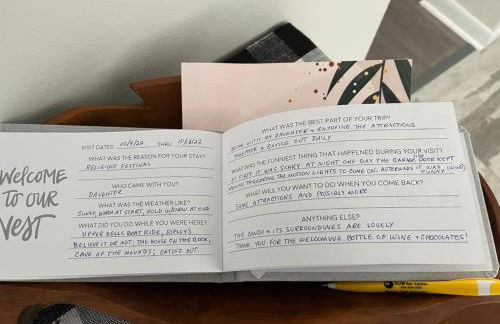 WELCOME
TO OUR
NEST
VISIT DATES 10/9/22 THRU 10/13/22
WHAT WAS THE REASON FOR YOUR STAY?
RELIGIOUS FESTIVAL
WHO CAME WITH YOU?
DAUGHTER
WHAT WAS THE WEATHER LIKE?
SUNNY, WARM AT START, COLD W/ AT END
WHAT DID YOU DO WHILE YOU WERE HERE?
UPPER DELLS BOAT RIDE, RIPLEY'S
BELIEVE IT OR NOT, THE HOUSE ON THE ROCK,
CAVE OF THE MOUNDS, EATING OUT.
WHAT WAS THE BEST PART OF YOUR TRIP?
BEING WITH MY DAUGHTER & ENJOYING THE ATTRACTIONS
TOGETHER & EATING OUT DAILY
WHAT WAS THE FUNNIEST THING THAT HAPPENED DURING YOUR VISIT?
AT FIRST IT WAS SCARY AT NIGHT ONE DAY THE GARAGE DOOR KEPT
TRIGGERING THE MOTION LIGHTS TO COME ON. AFTERWARDS IT WAS
FUNNY
WHAT WILL YOU WANT TO DO WHEN YOU COME BACK?
SAME ATTRACTIONS AND POSSIBLY MORE
ANYTHING ELSE?
THE CONDO & ITS SURROUNDINGS ARE LOVELY
THANK YOU FOR THE WELCOMING BOTTLE OF WINE & CHOCOLATES!